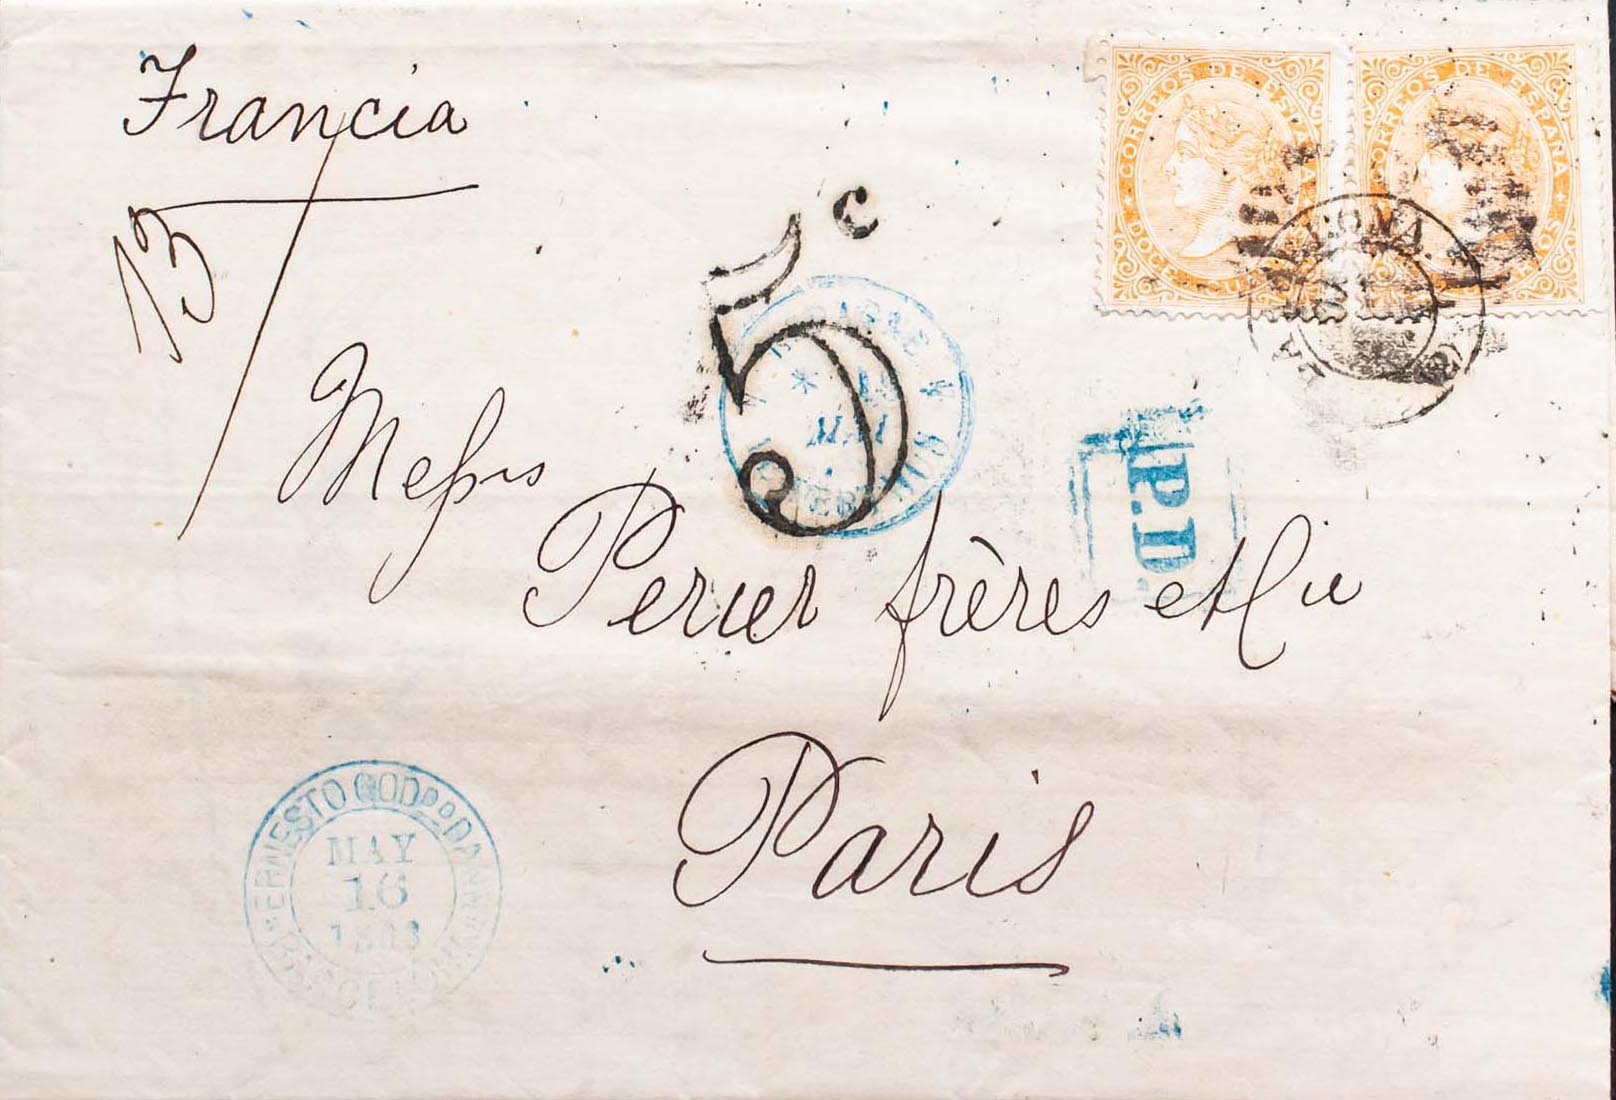 Francia
13
CORREOS DE ESPAÑA
DOCE CU
CORREOS DE ESPAÑA
5c
P.D.
Messrs
Perier frères et Cie
Paris
ERNESTO GODO
MAY
16
1868